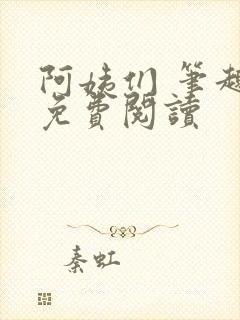 阿姨们 笔趣
免費閱讀
秦虹